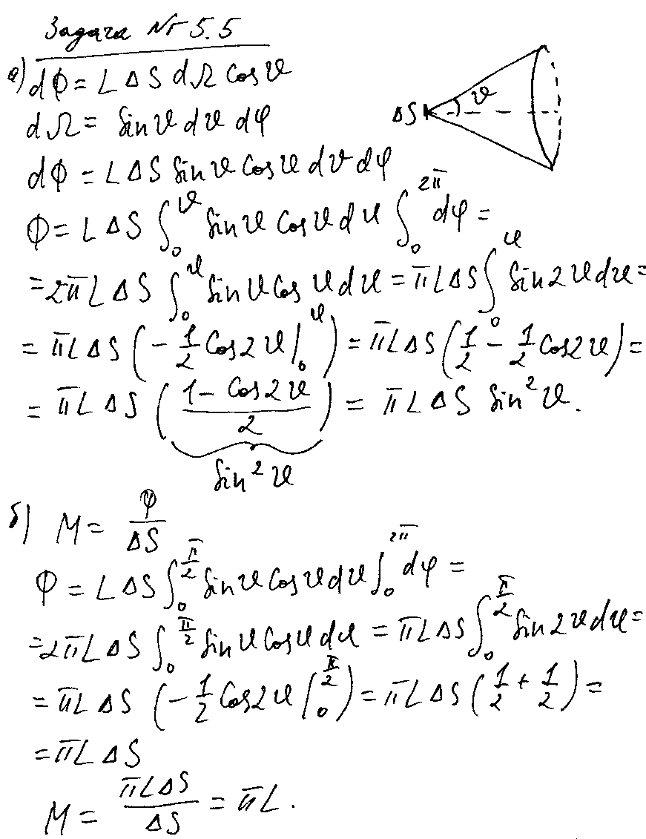 Задача № 5.5
а) dΦ = L ΔS dΩ cos ϑ
ΔS ϑ
dΩ = sin ϑ dϑ dφ
dΦ = L ΔS sin ϑ cos ϑ dϑ dφ
Φ = L ΔS ∫₀^ϑ sin ϑ cos ϑ dϑ ∫₀^2π dφ =
= 2π L ΔS ∫₀^ϑ sin ϑ cos ϑ dϑ = π L ΔS ∫₀^ϑ sin 2ϑ dϑ =
= π L ΔS (- 1/2 cos 2ϑ |₀^ϑ) = π L ΔS (1/2 - 1/2 cos 2ϑ) =
= π L ΔS ((1 - cos 2ϑ)/2) = π L ΔS sin² ϑ.
sin² ϑ
б) M = Φ/ΔS
Φ = L ΔS ∫₀^π/2 sin ϑ cos ϑ dϑ ∫₀^2π dφ =
= 2π L ΔS ∫₀^π/2 sin ϑ cos ϑ dϑ = π L ΔS ∫₀^π/2 sin 2ϑ dϑ =
= π L ΔS (- 1/2 cos 2ϑ |₀^π/2) = π L ΔS (1/2 + 1/2) =
= π L ΔS
M = π L ΔS/ΔS = π L.